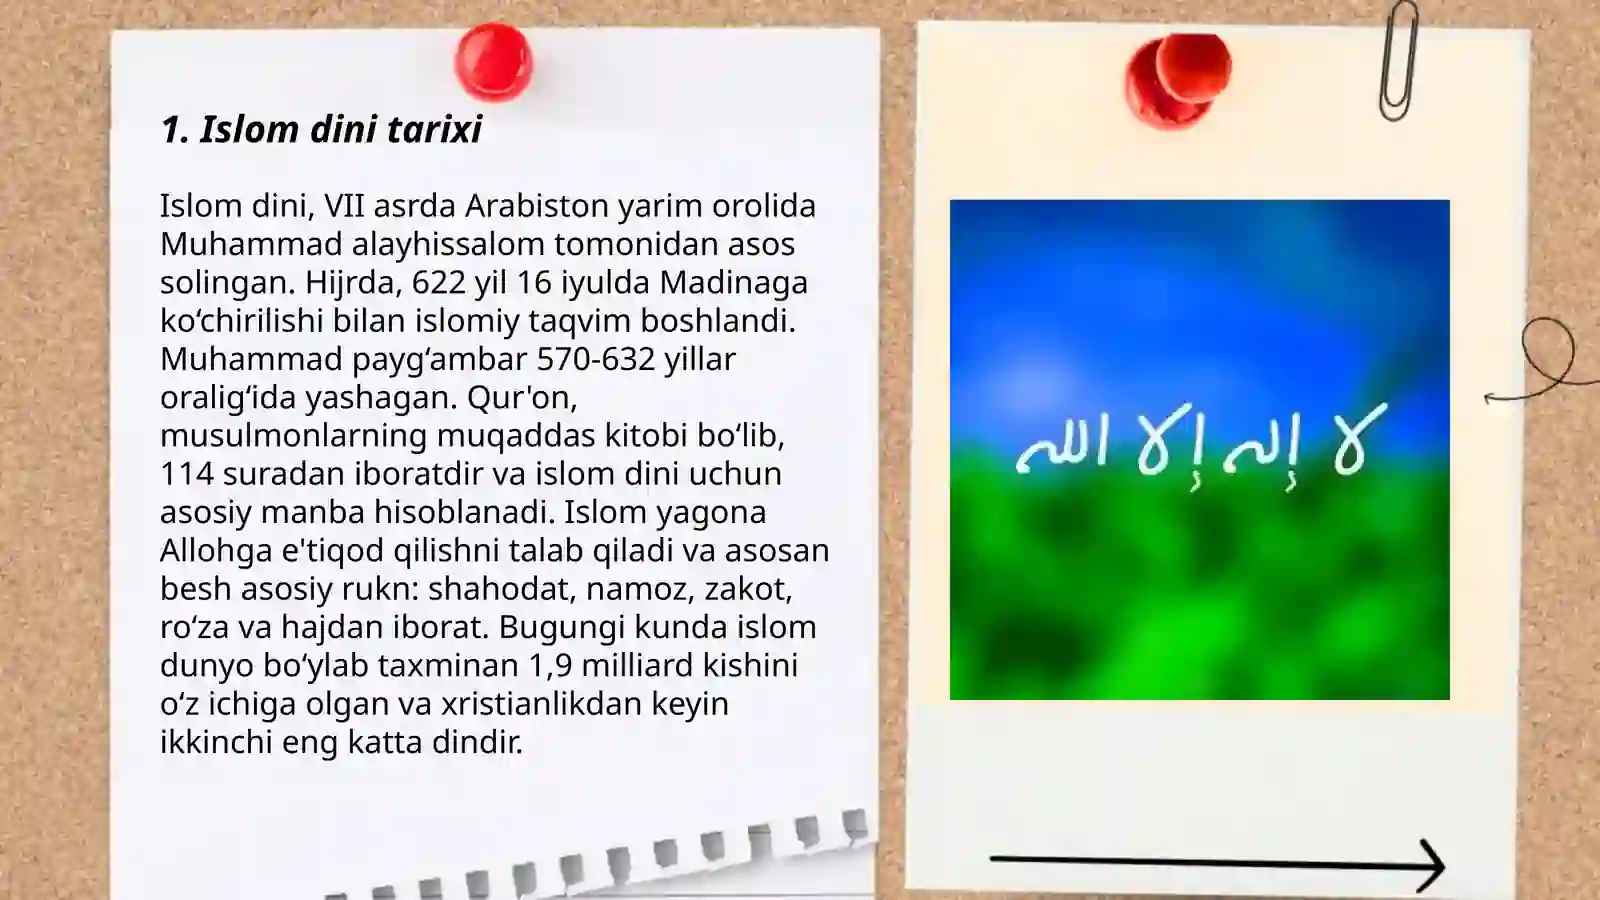 1. Islom dini tarixi
Islom dini, VII asrda Arabiston yarim orolida
Muhammad alayhissalom tomonidan asos
solingan. Hijrda, 622 yil 16 iyulda Madinaga
ko‘chirilishi bilan islomiy taqvim boshlandi.
Muhammad payg‘ambar 570-632 yillar
oralig‘ida yashagan. Qur'on,
musulmonlarning muqaddas kitobi bo‘lib,
114 suradan iboratdir va islom dini uchun
asosiy manba hisoblanadi. Islom yagona
Allohga e'tiqod qilishni talab qiladi va asosan
besh asosiy rukn: shahodat, namoz, zakot,
ro‘za va hajdan iborat. Bugungi kunda islom
dunyo bo‘ylab taxminan 1,9 milliard kishini
o‘z ichiga olgan va xristianlikdan keyin
ikkinchi eng katta dindir.
لا إله إلا الله